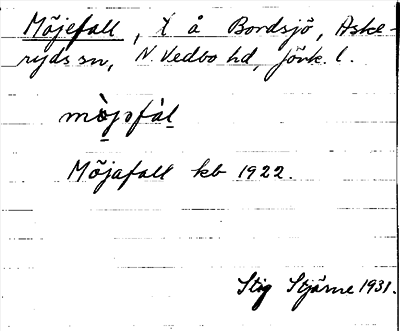 Möjefall, X å Bordsjö, Aske-
ryds sn, N. Vedbo hd, Jönk. l.
mo̱jɔfal
Möjafall kb 1922.
Stig Stjärne 1931.